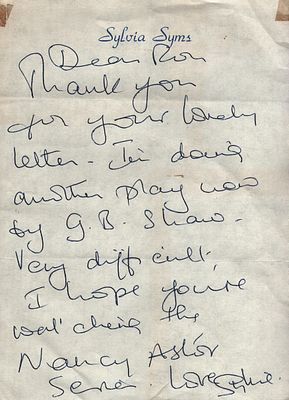 Sylvia Syms
Dear Ron
Thank you
for your lovely
letter - I'm doing
another play now
by G.B. Shaw -
Very difficult.
I hope you're
watching the
Nancy Astor
Series. Love Sylvia.